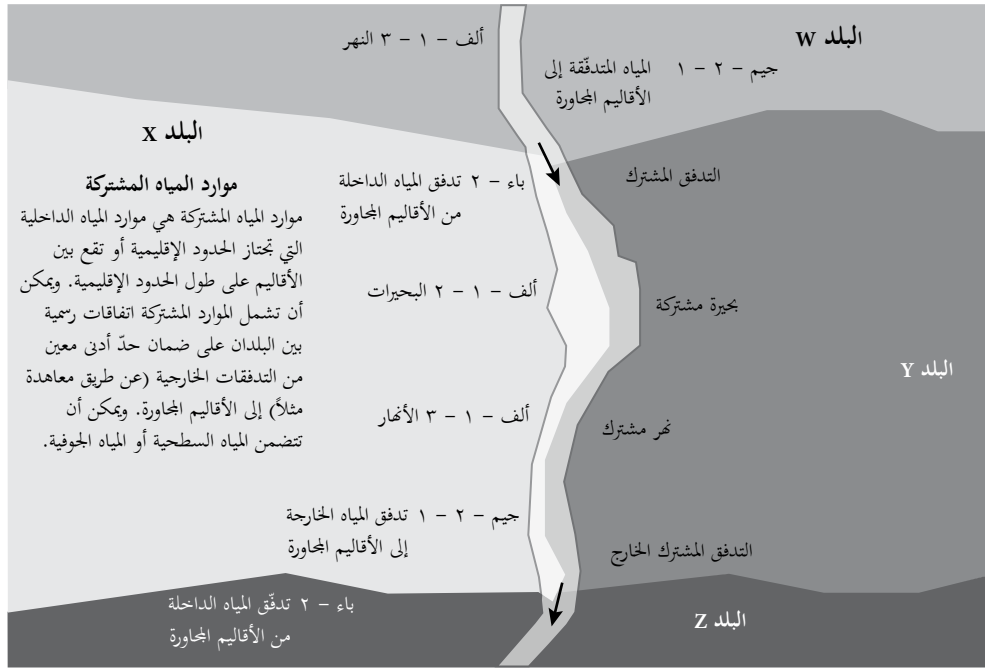 البلد W
ألف - ١ - ٣ النهر
جيم - ٢ - ١ المياه المتدفّقة إلى
الأقاليم المجاورة
البلد X
موارد المياه المشتركة
موارد المياه المشتركة هي موارد المياه الداخلية
التي تجتاز الحدود الإقليمية أو تقع بين
الأقاليم على طول الحدود الإقليمية. ويمكن
أن تشمل الموارد المشتركة اتفاقات رسمية
بين البلدان على ضمان حدّ أدنى معين
من التدفقات الخارجية (عن طريق معاهدة
مثلاً) إلى الأقاليم المجاورة. ويمكن أن
تتضمن المياه السطحية أو المياه الجوفية.
باء - ٢ تدفق المياه الداخلة
من الأقاليم المجاورة
ألف - ١ - ٢ البحيرات
ألف - ١ - ٣ الأنهار
جيم - ٢ - ١ تدفق المياه الخارجة
إلى الأقاليم المجاورة
التدفق المشترك
بحيرة مشتركة
البلد Y
نهر مشترك
التدفق المشترك الخارج
البلد Z
باء - ٢ تدفّق المياه الداخلة
من الأقاليم المجاورة